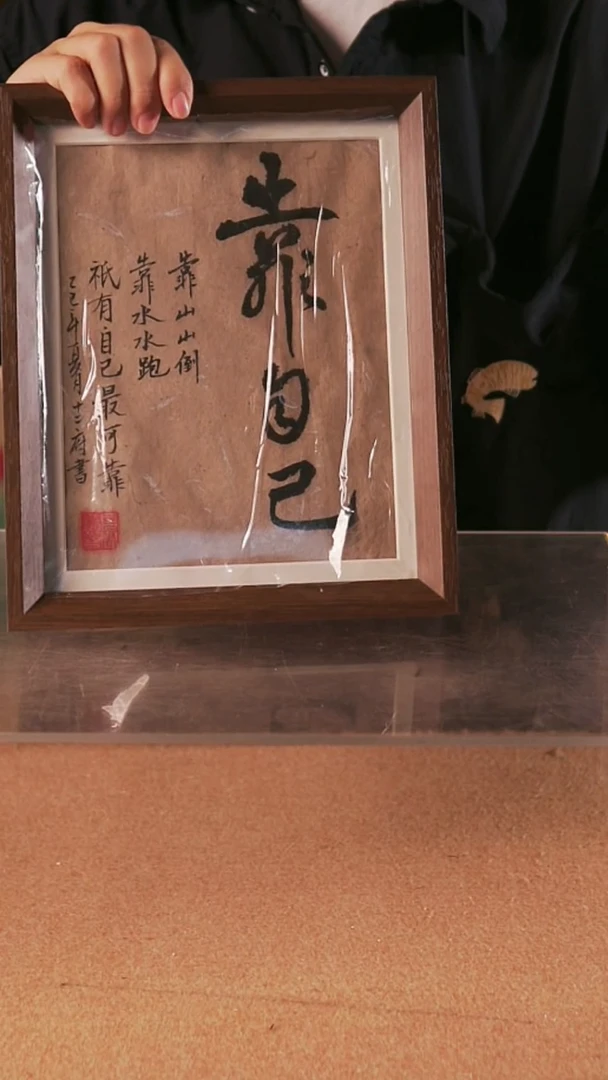 靠自己
靠山山倒
靠水水跑
祇有自己最可靠
乙巳年亥月十三府書